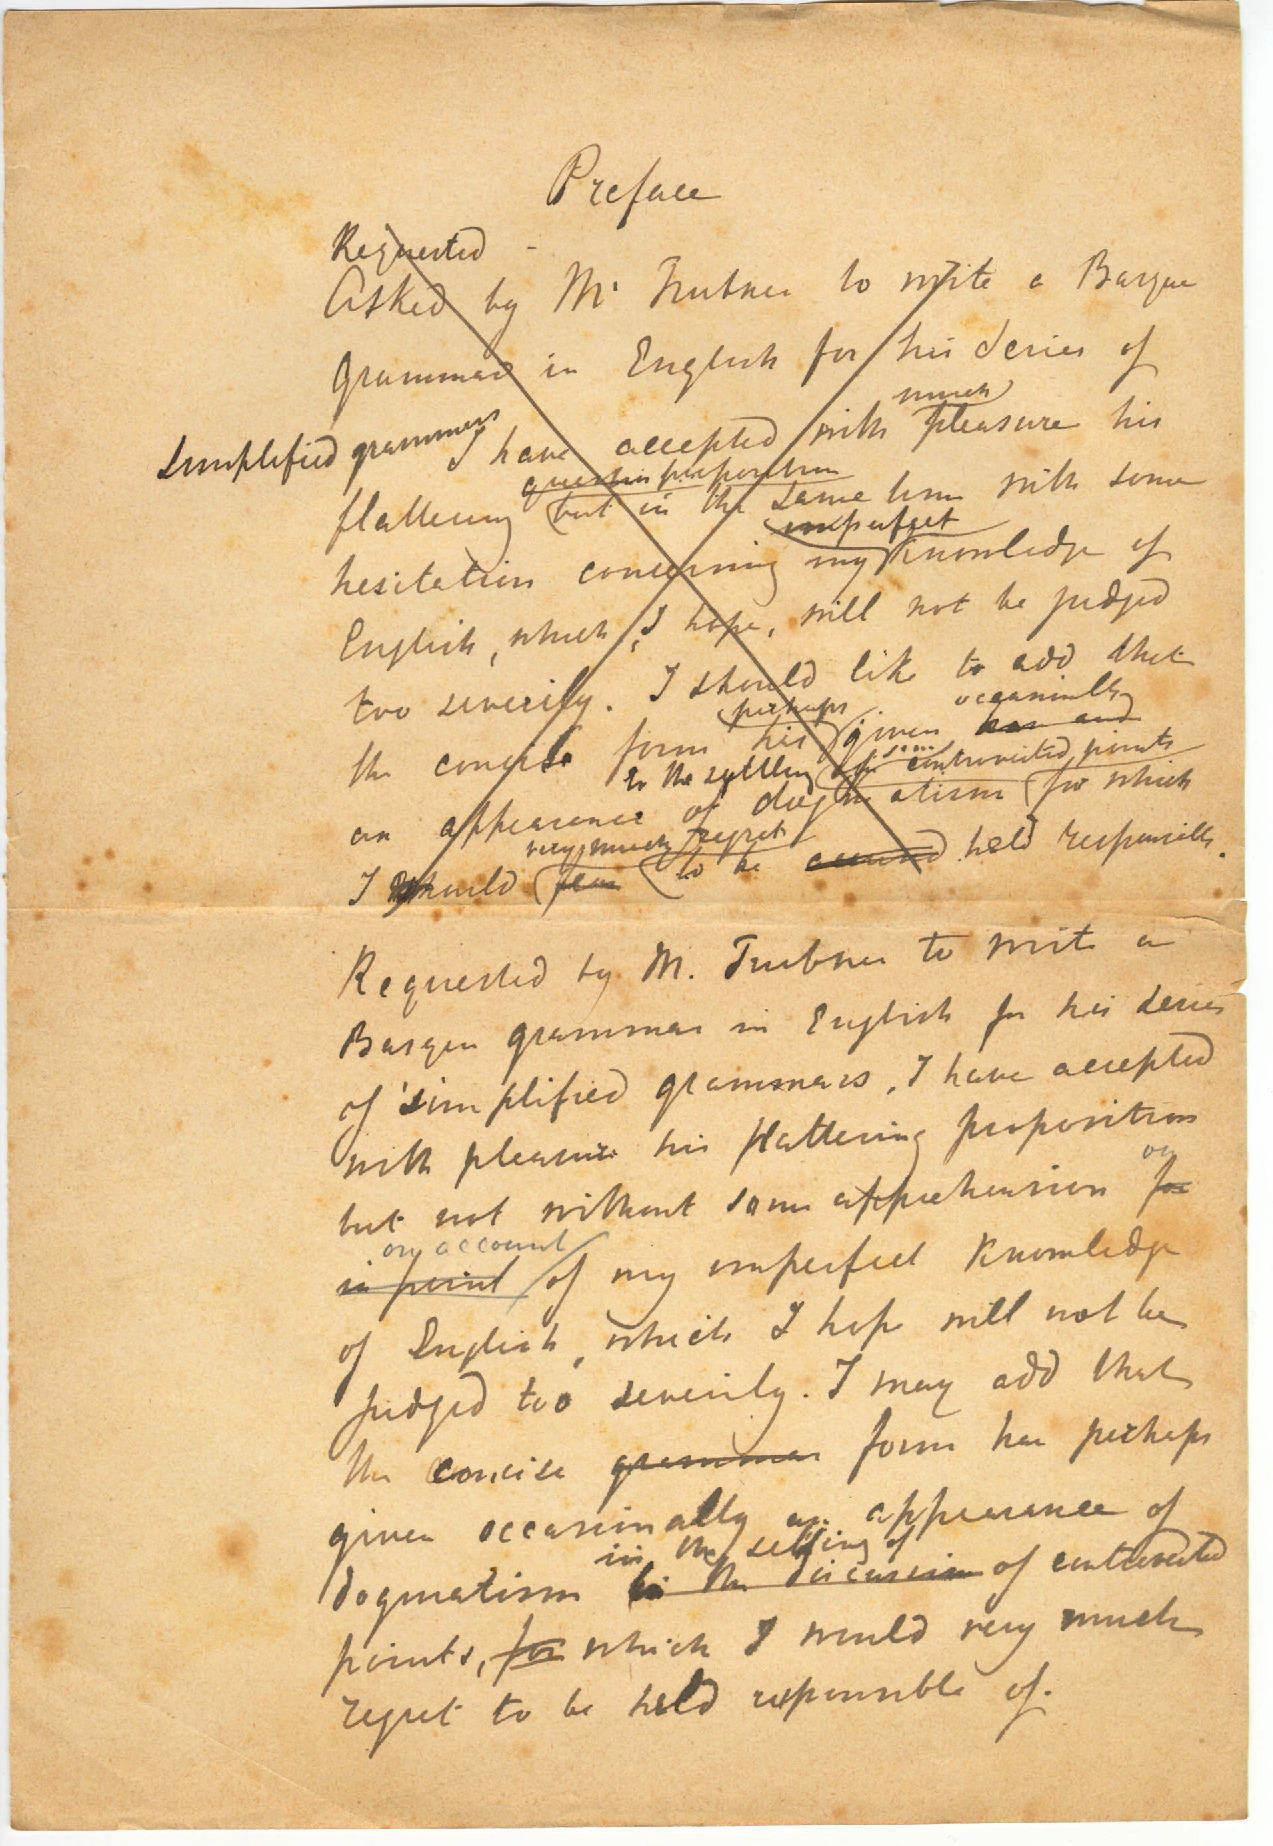 Preface
Requested -
Asked by Mr Trubner to write a Basque
grammar in English for his series of
much
simplified grammars I have accepted with pleasure his
question proposition
flattering but in the same time with some
imperfect
hesitation concerning my knowledge of
English, which, I hope, will not be judged
too severily. I should like to add that
perhaps occasionally
the concise form his given has and
in the settling of some controverted points
an appearance of dogmatism for which
very much regret
I should fear to be accused held responsible.
Requested by M. Trubner to write a
Basque grammar in English for his series
of simplified grammars, I have accepted
with pleasure his flattering proposition
on
but not without some apprehension for
on account
in point of my imperfect knowledge
of English, which I hope will not be
judged too severily. I may add that
the concise grammar form has perhaps
given occasionally an appearance of
in the settling of
dogmatism in the discussion of controverted
points, for which I would very much
regret to be held responsible of.